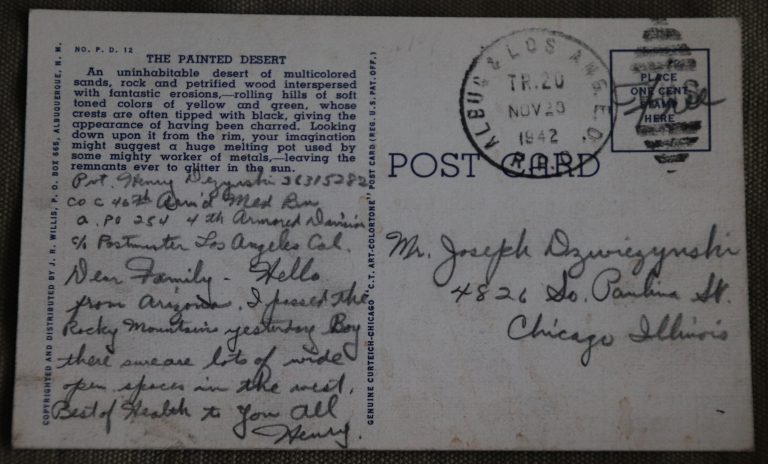 NO. P. D. 12
THE PAINTED DESERT
An uninhabitable desert of multicolored
sands, rock and petrified wood interspersed
with fantastic erosions,—rolling hills of soft
toned colors of yellow and green, whose
crests are often tipped with black, giving the
appearance of having been charred. Looking
down upon it from the rim, your imagination
might suggest a huge melting pot used by
some mighty worker of metals,—leaving the
remnants ever to glitter in the sun.
Pvt. Henry 36315282
Co C 46th Arm'd Med Bn
A.PO 254 4th Armored Division
c/o Postmaster Los Angeles Cal.
Dear Family - Hello
from Arizona. I passed the
Rocky Mountains yesterday Boy
there sure are lots of wide
open spaces in the west.
Best of Health to You All
Henry.
COPYRIGHTED AND DISTRIBUTED BY J. R. WILLIS, P. O. BOX 665, ALBUQUERQUE, N. M.
GENUINE CURTEICH-CHICAGO "C.T. ART-COLORTONE" POST CARD (REG. U.S. PAT. OFF.)
ALBUQ & LOS ANGE.
TR.20
NOV
1942
R.P.O.
PLACE
ONE CENT
STAMP
HERE
Free
POST CARD
Mr. Joseph Dzwiezynski
4826 So. Paulina St.
Chicago Illinois